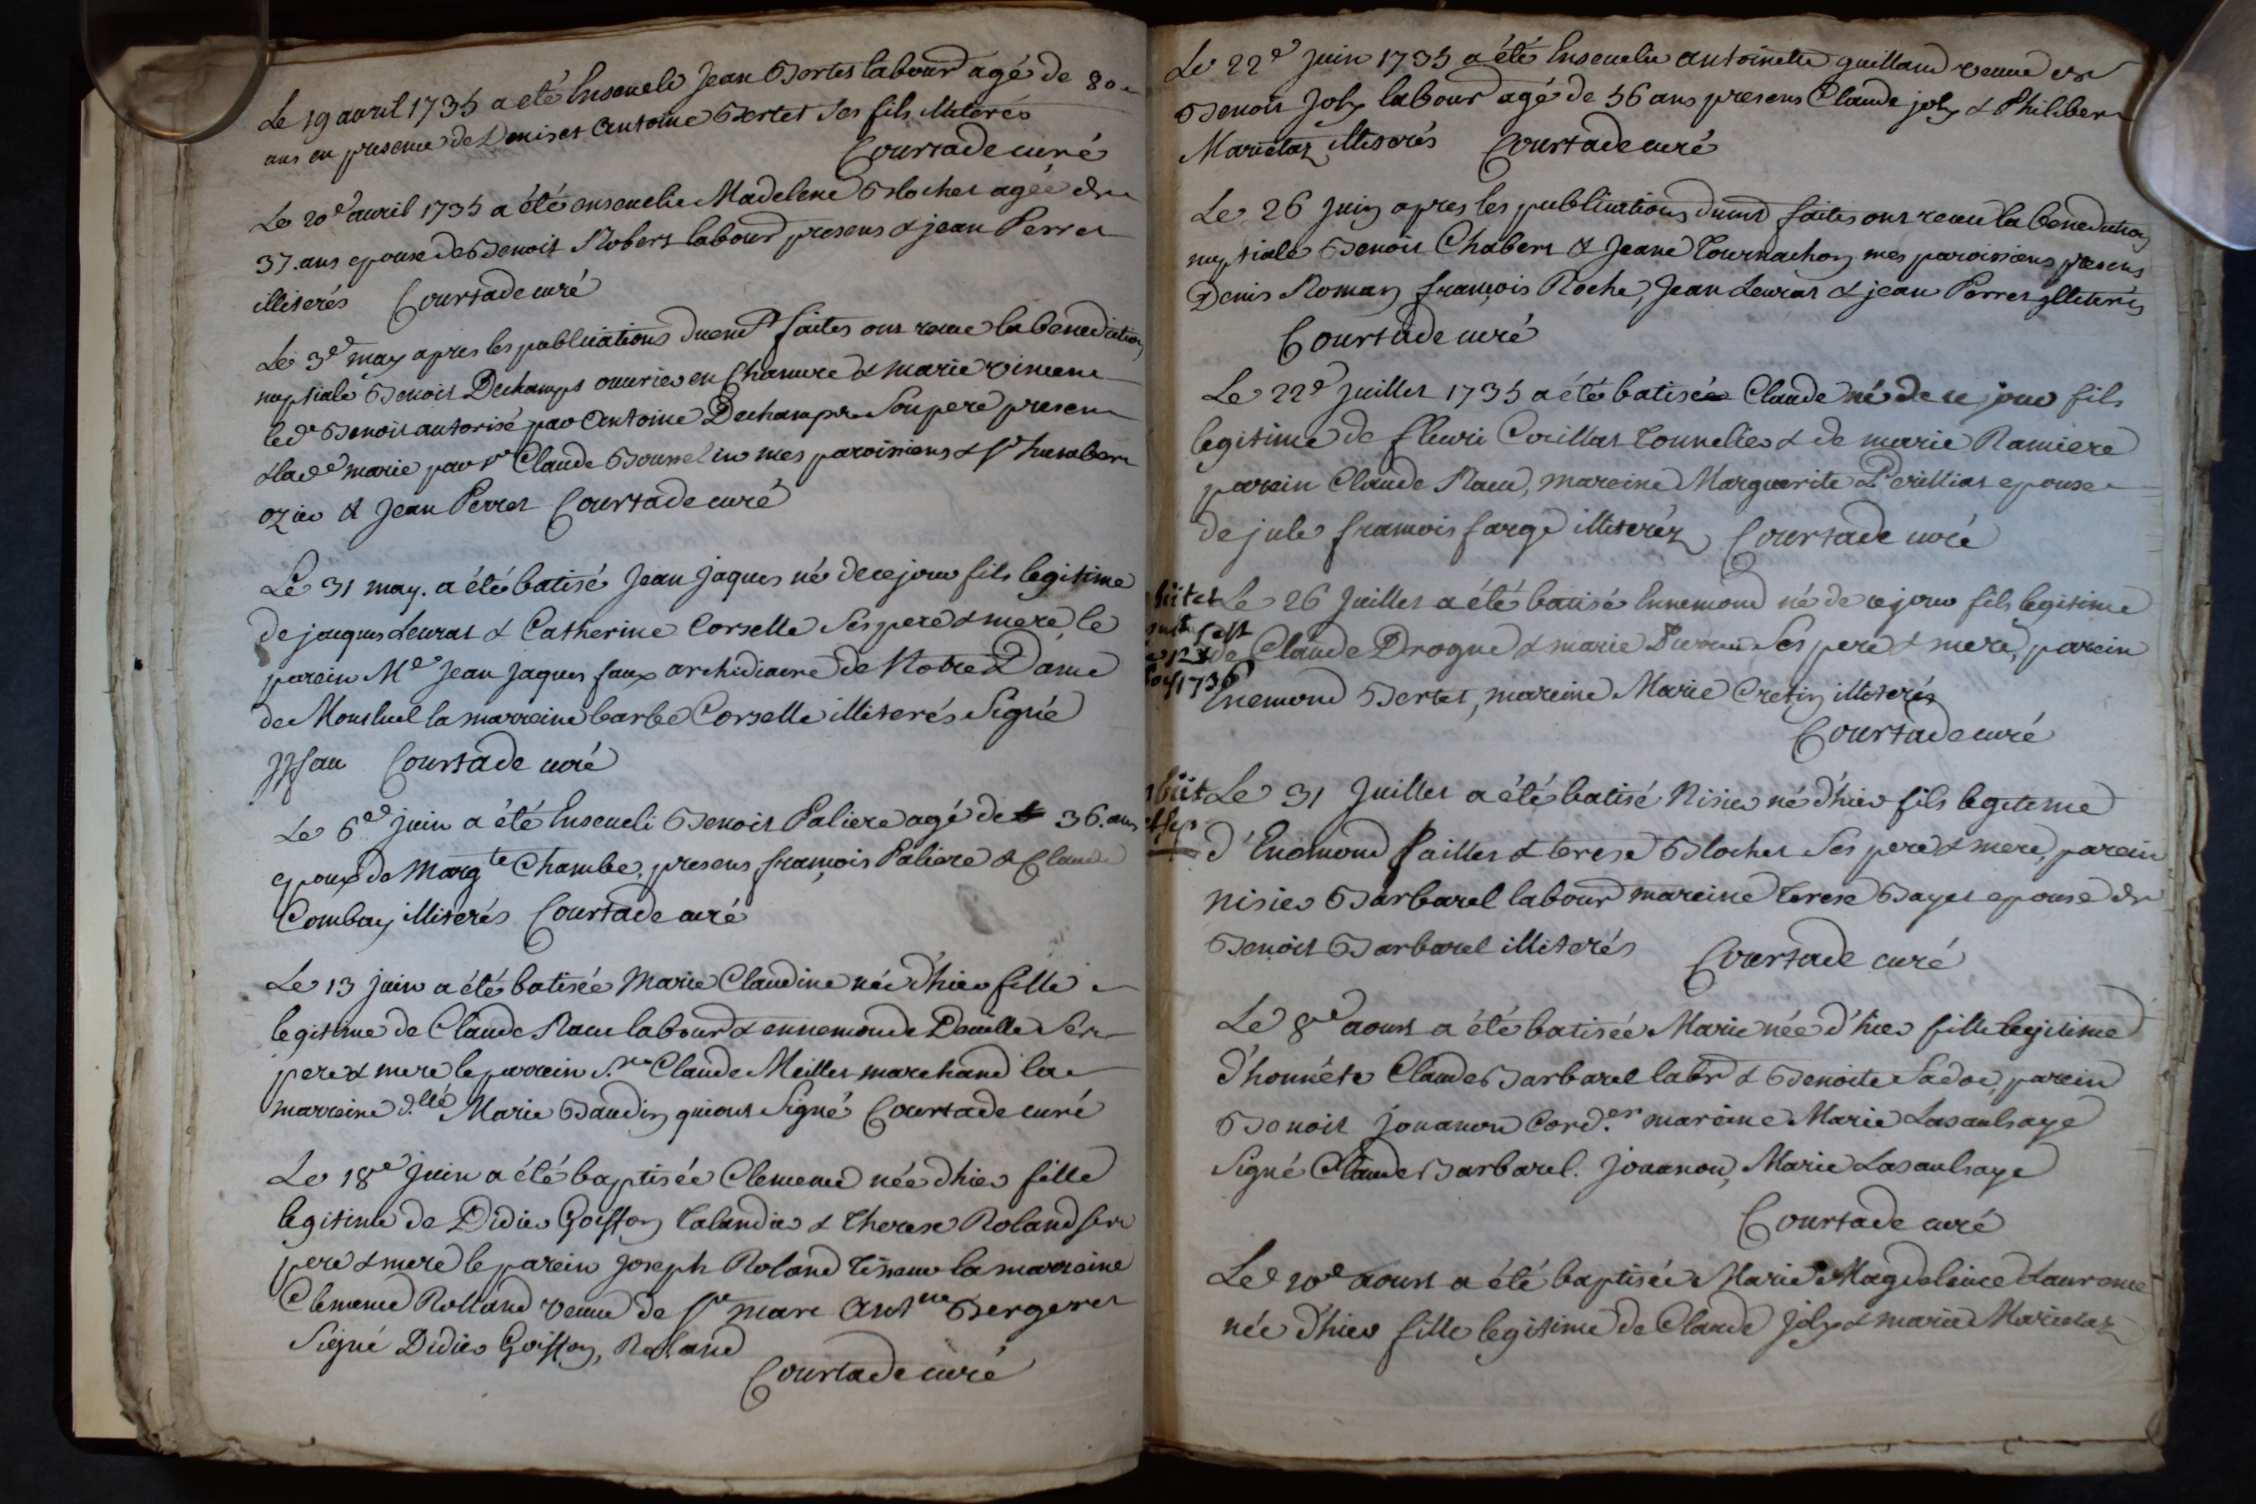 Le 19 avril 1735 a eté Enseveli Jean Bertet labour agé de 80
ans en presence de Denis et Antoine Bertet ses fils illiterés
Courtade curé
Le 20e avril 1735 a été ensevelie Madelene Blochet agée de
37. ans epouse de Benoit Robert labour presens & jean Perret
illiterés Courtade curé
Le 3e may apres les publications duemt faites ont receu la benediction
nuptiale Benoit Dechamps ouvrier en Chanvre & marie vincent
led Benoit autorisé par Antoine Dechamps Son pere present
& lade marie par sr Claude mes paroissiens & sr humbert
ozier & Jean Perret Courtade curé
Le 31 may. a été batisé Jean Jaques né de ce jour fils legitime
de jacques Leurat & Catherine Corselle Ses pere & mere, le
parein Mre Jean Jaques faux archidiacre de Notre Dame
de Montluel la marreine barbe Corselle illiterés Signé
JJfau Courtade curé
Le 6e juin a été Enseveli Benoit Paliere agé de 36. ans
epoux de Margte Chambe, presens françois Paliere & Claude
Combay illiterés Courtade curé
Le 13 juin a été batisée Marie Claudine née d'hier fille
legitime de Claude Raeu labour & ennemonde Douille Ses
pere & mere le parrein Sr Claude Meillet marchand la
marreine dlle Marie Baudin qui ont Signé Courtade curé
Le 18e Juin a été baptisée Clemence née d'hier fille
legitime de Didier Goiffon & Therese Roland ses
pere & mere le parein Joseph Roland la marreine
Clemence Rolland veuve de sr marc Antne Bergeret
Signé Didier Goiffon, Roland
Courtade curé
Le 22e juin 1735 a été Ensevelie antoinette guilland veuve de
Benoit Joly labour agé de 56 ans presens Claude joly & Philibert
Marietaz illiterés Courtade curé
Le 26 juin apres les publications dumt faites ont receu la benediction
nuptiale Benoit Chabert & Jeane Tournachon mes paroissiens presens
Denis Roman françois Roche, Jean Leurat & jean Perret illiterés
Courtade curé
Le 22e Juillet 1735 a été batisé Claude né de ce jour fils
legitime de fleuri Coillat Tonnelier & de marie Ramiere
parein Claude Raeu, mareine Marguerite Perilliat epouse
de jule francois farge illiteréz Courtade curé
Le 26 Juillet a été batisé Ennemond né de ce jour fils legitime
de Claude Drogue & marie Ses pere & mere, parein
1736
Enemond Bertet, mareine Marie Cretin illiterés
Courtade curé
Le 31 Juillet a été batisé Nisier né d'hier fils legitime
d'Enemond Paillet & terese Blochet Ses pere & mere, parein
nisier Barbarel labour mareine Terese Bayet epouse de
Benoit Barbarel illiterés Courtade curé
Le 8e aoust a été batisée Marie née d'hier fille legitime
d'honnéte Claude Barbarel labr & Benoite Sadoc, parein
Benoit jouanon Corder mareine Marie Lasaulsaye
Signé Claude Barbarel. Jouanon, Marie Lasaulsaye
Courtade curé
Le 10e aoust a été baptisée Marie Magdeleine Laurence
née d'hier fille legitime de Claude Joly & marie Marietaz